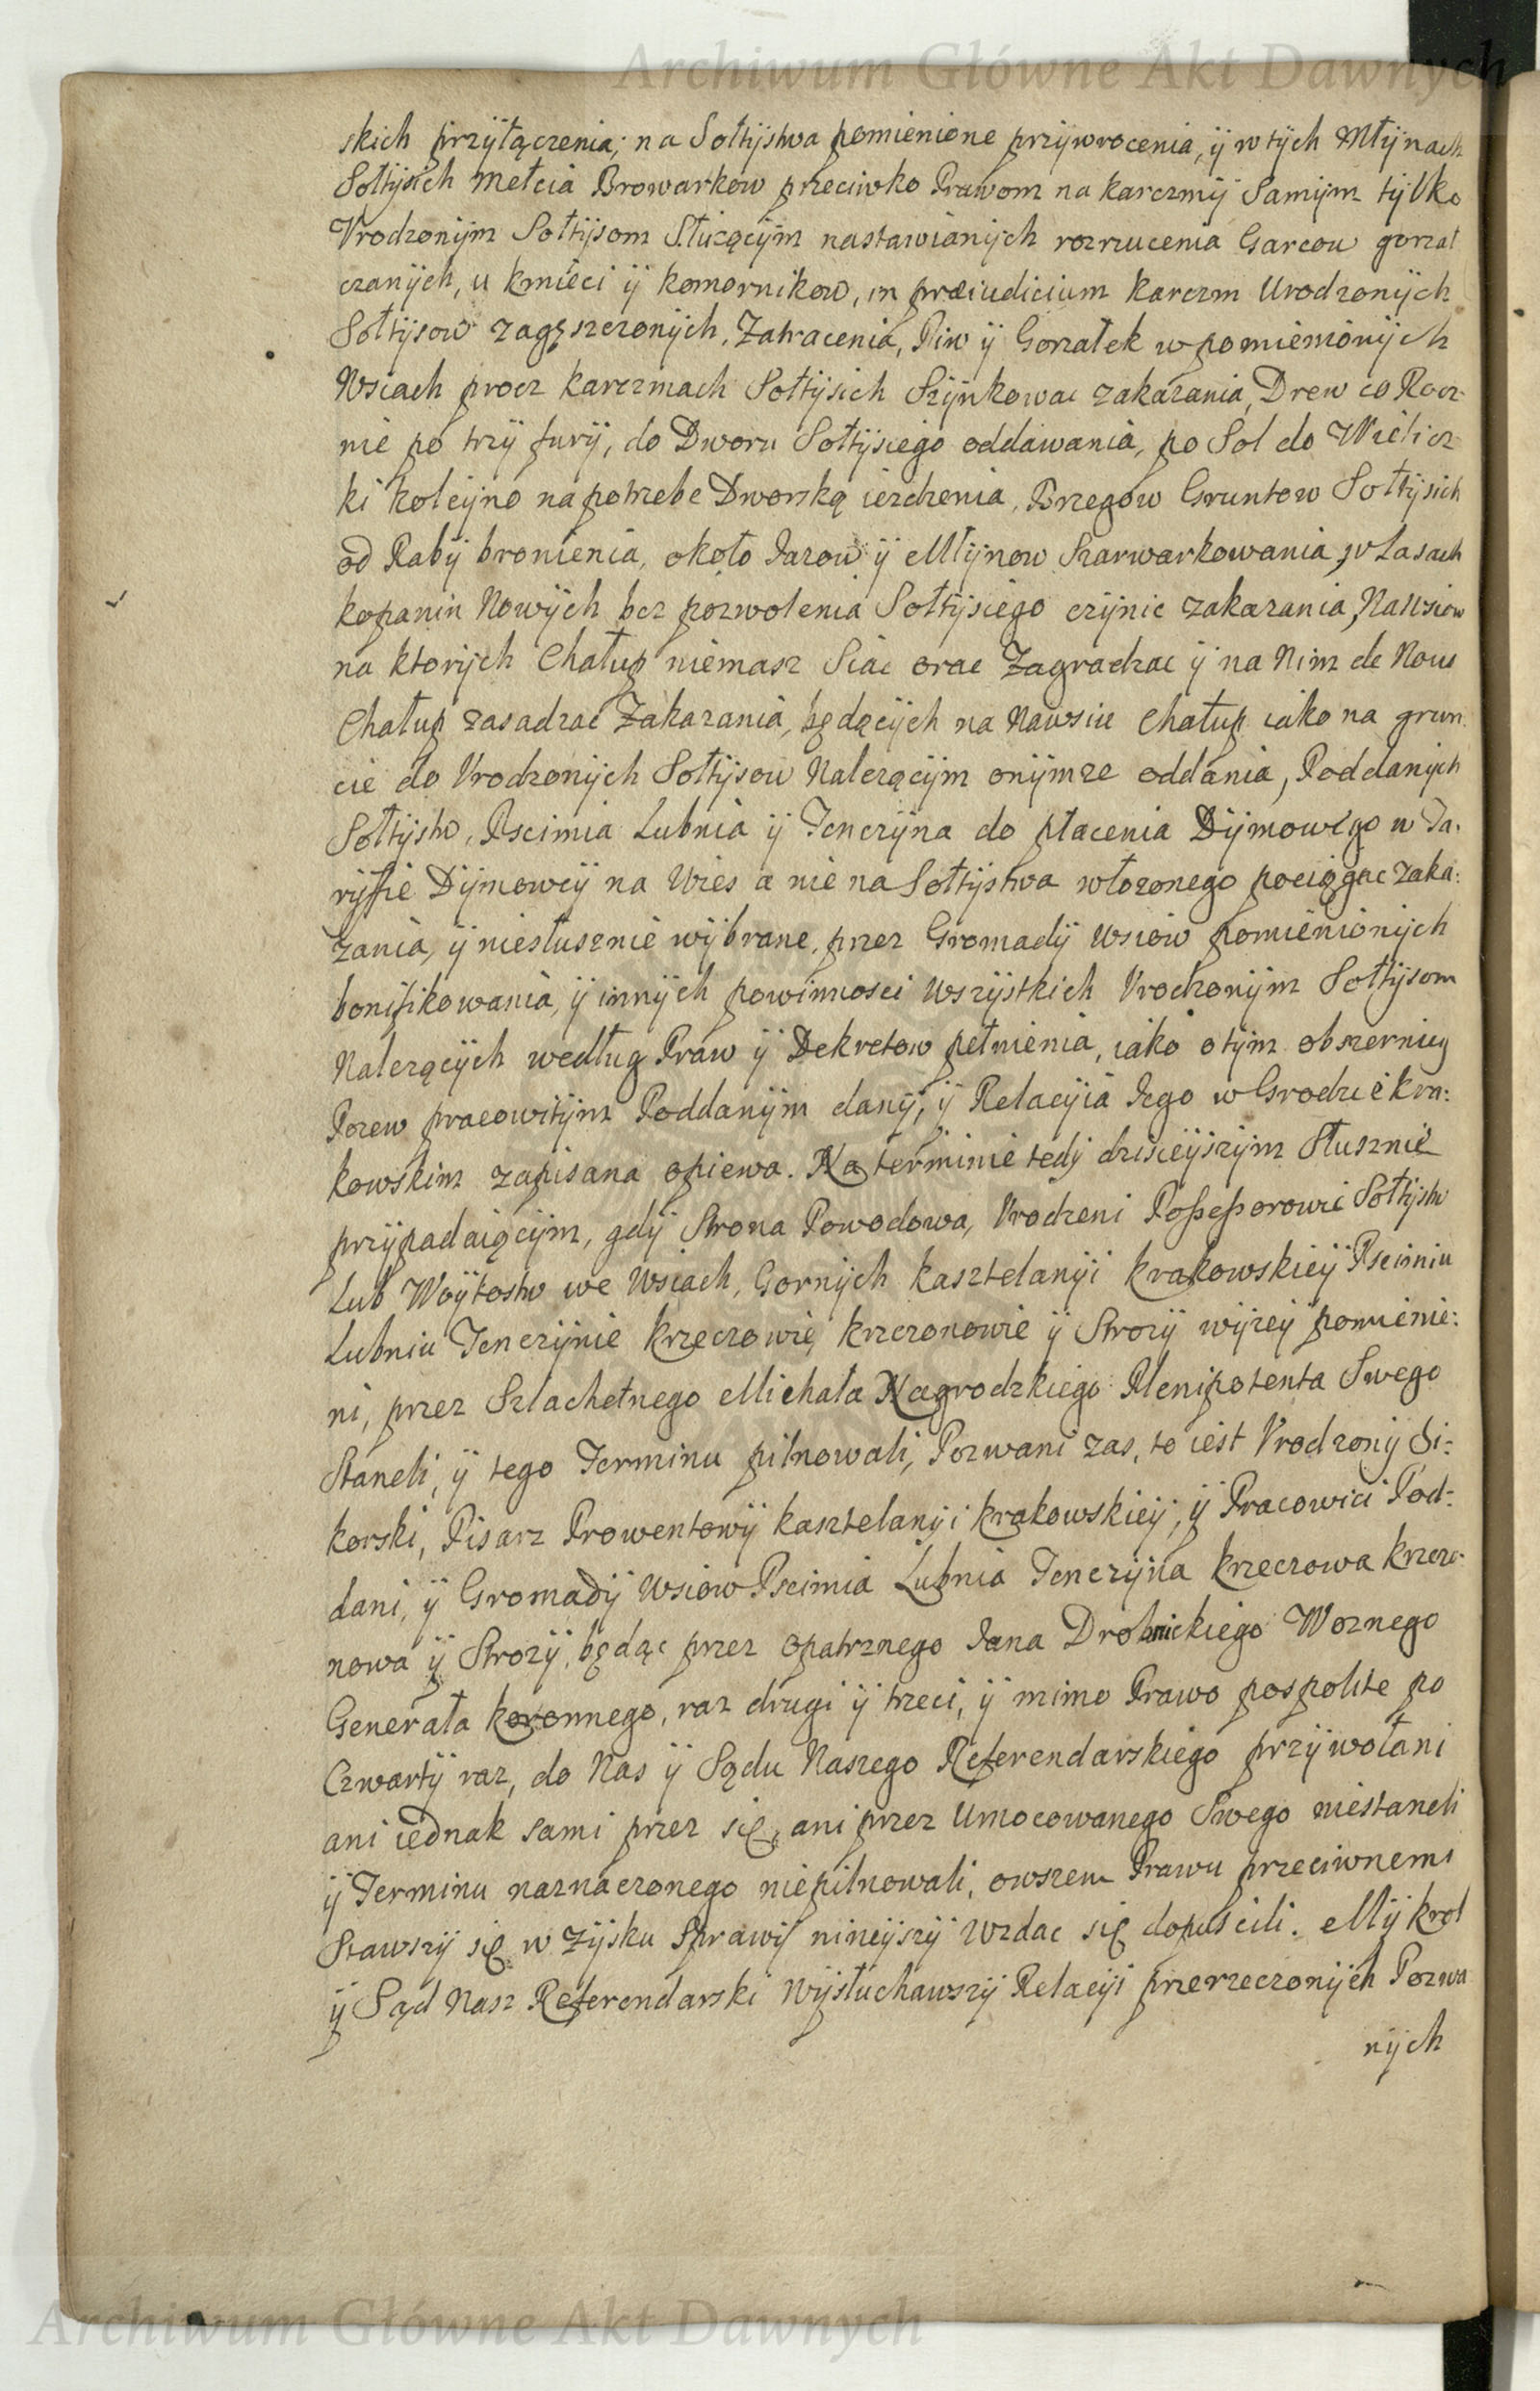 Archiwum Główne Akt Dawnych
skich przyłączenia; na Sołtystwa pomienione przywrocenia, ÿ w tych Młynach
Sołtysich mełcia Browarkow przeciwko Prawom na karczmÿ Samym tylko
Vrodzonym Sołtysom Służącym nastawianych rozrzucenia Garcow gorzał
czanych, u kmieci ÿ komornikow, in præiudicium karczm Urodzonych
Sołtysow zagęszczonych, Zatracenia, Piw ÿ Gorzałek w pomienionych
Wsiach procz karczmach Sołtysich Szynkowac zakazania, Drew co Rocz-
nie po trzÿ furÿ, do Dworu Sołtysiego oddawania, po Sol do Wielicz
ki koleyno na potrzebe Dworską iezdzenia, Brzegow Gruntow Sołtysich
od Rabÿ bronienia, około Jazow ÿ Młynow Szarwarkowania, w Lasach
kopanin Nowych bez pozwolenia Sołtysiego czynic zakazania, Nawsiow
na ktorych Chałup niemasz Siac orac Zagradzac ÿ na Nim de Nouo
Chałup zasadzac Zakazania, będących na Nawsiu Chałup iako na grun
cie do Vrodzonych Sołtysow Nalezącym onymze oddania, Poddanych
Sołtystw, Pscimia Lubnia ÿ Tenczyna do płacenia Dymowego w Ta-
ryffie Dymoweÿ na Wies a nie na Sołtystwa włozonego pociągac zaka:
zania, ÿ niesłusznie wybrane, przez Gromadÿ Wsiow pomienionych
bonifikowania, ÿ innych powinnosci wszystkich Vrodzonym Sołtysom
Nalezących według Praw ÿ Dekretow pełnienia, iako o tym obszerniey
Pozew pracowitym Poddanym danÿ, ÿ Relacyia Jego w Grodzie kra:
kowskim zapisana opiewa. Na terminie tedÿ dzisieyszym Słusznie
przypadaiącym, gdÿ Strona Powodowa, Vrodzeni Possessorowie Sołtystw
Lub Woytostw we Wsiach, Gornych kasztelanyi krakowskieÿ Pscimiu
Lubniu Tenczynie krzeczowie, krzczonowie ÿ Strozÿ wyzeÿ pomienie:
ni, przez Szlachetnego Michała Nagrodzkiego Plenipotenta Swego
Staneli, ÿ tego Terminu pilnowali, Pozwani zas, to iest Vrodzonÿ Si:
korski, Pisarz Prowentowÿ kasztelanyi krakowskieÿ, ÿ Pracowici Pod-
dani, ÿ Gromadÿ Wsiow Pscimia Lubnia Tenczyna krzeczowa krzczo-
nowa ÿ Strozÿ, będąc przez Opatrznego Jana Drobnickiego Woznego
Generała koronnego, raz drugi ÿ trzeci, ÿ mimo Prawo pospolite po
Czwartÿ raz, do Nas ÿ Sądu Naszego Referendarskiego przywołani
ani iednak sami przez się, ani przez Umocowanego Swego niestaneli
ÿ Terminu naznaczonego niepilnowali, owszem Prawu przeciwnemi
Stawszÿ się w Zysku Sprawÿ ninieyszÿ Wzdac się dopuscili. Mÿ krol
ÿ Sąd Nasz Referendarski Wysłuchawszÿ Relacyi przerzeczonych Pozwa
nych
Archiwum Główne Akt Dawnych